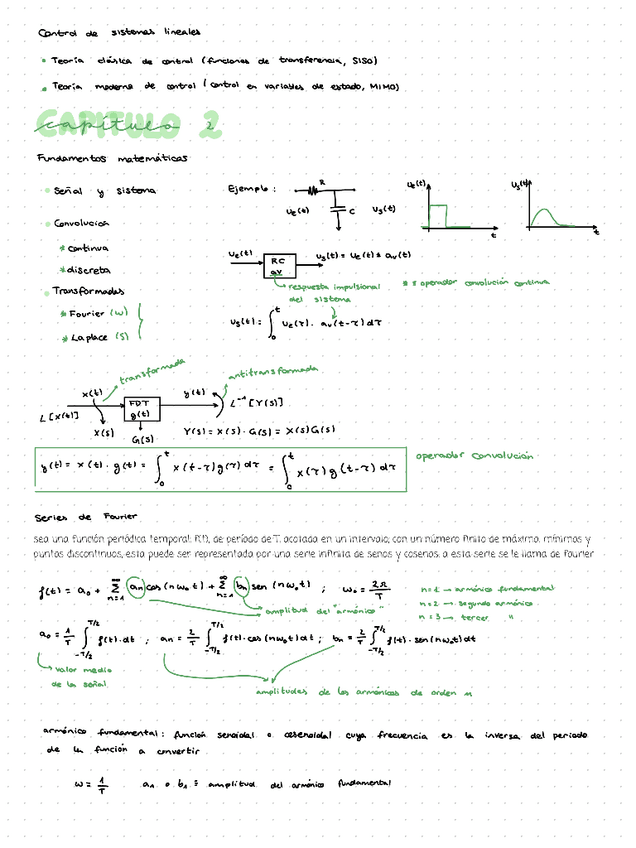 Control de sistemas lineales
• Teoría clásica de control (funciones de transferencia, SISO)
• Teoría moderna de control (control en variables de estado, MIMO)
CAPITULO 2
capítulo 2
Fundamentos matemáticos
• Señal y sistema
Ejemplo:
R
C
Ue(t)
Us(t)
Ue(t)
t
Us(t)
t
• Convolucion
* continua
* discreta
Ue(t)
RC
av
Us(t) = Ue(t) * av(t)
respuesta impulsional
del sistema
* = operador convolución continua
• Transformadas
* Fourier (w)
* Laplace (s)
Us(t) = ∫₀ᵗ Ue(τ) · av(t-τ) dτ
transformada
antitransformada
x(t)
FDT
g(t)
y(t)
L[x(t)]
X(s)
G(s)
L⁻¹[Y(s)]
Y(s) = X(s) · G(s) = X(s)G(s)
y(t) = x(t) · g(t) = ∫₀ᵗ x(t-τ)g(τ) dτ = ∫₀ᵗ x(τ)g(t-τ) dτ
operador convolución
Series de Fourier
sea una función periódica temporal f(t), de período de T, acotada en un intervalo, con un número finito de máximo, mínimos y
puntos discontinuos, esta puede ser representada por una serie infinita de senos y cosenos, a esta serie se le llama de Fourier
f(t) = a₀ + ∑ₙ₌₁^∞ an cos(nω₀t) + ∑ₙ₌₁^∞ bn sen(nω₀t) ; ω₀ = 2π/T
n=1 → armónico fundamental
n=2 → segundo armónico
n=3 → tercer "
amplitud del "armónico"
a₀ = 1/T ∫_{-T/2}^{T/2} f(t)·dt ; an = 2/T ∫_{-T/2}^{T/2} f(t)·cos(nω₀t)dt ; bn = 2/T ∫_{-T/2}^{T/2} f(t)·sen(nω₀t)dt
valor medio
de la señal
amplitudes de los armónicos de orden n
armónico fundamental: función senoidal o cosenoidal cuya frecuencia es la inversa del periodo
de la función a convertir
ω = 1/T
a₁ o b₁ = amplitud del armónico fundamental